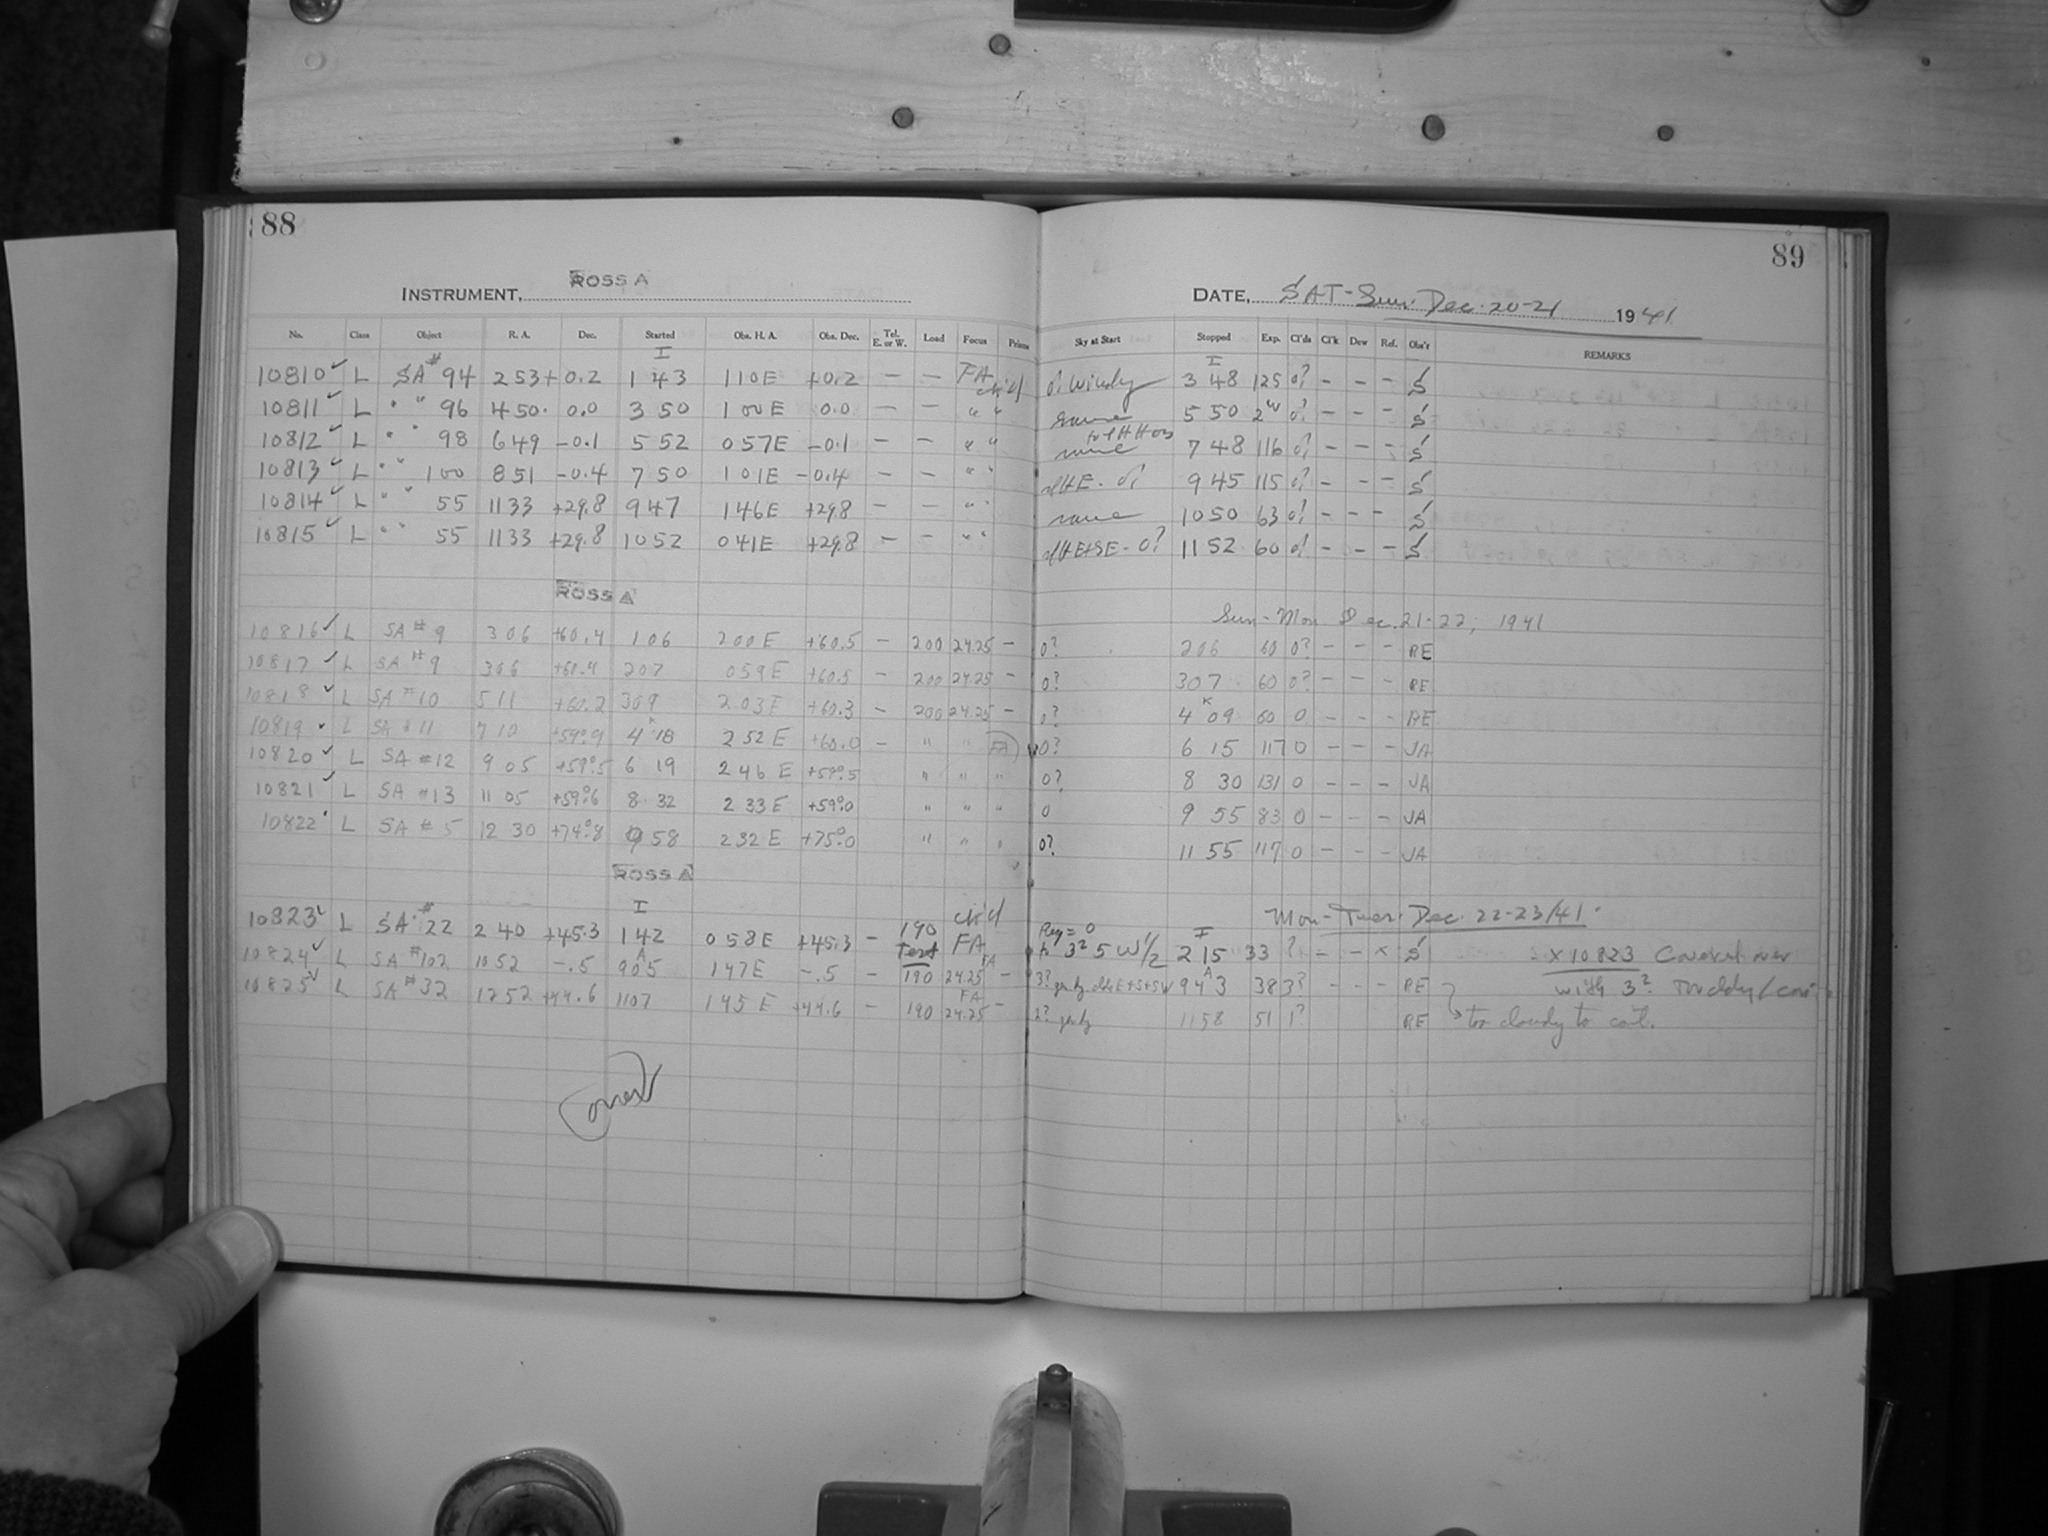 88
ROSS A
INSTRUMENT,
No. Class Object R. A. Dec. Started Obs. H. A. Obs. Dec. Tel. E. or W. Load Focus Prisms
I
10810 ✓ L SA # 94 2 53 + 0.2 1 43 1 10 E +0.2 — — FA ch'd
10811 ✓ L " " 96 4 50 0.0 3 50 1 00 E 0.0 — — " "
10812 ✓ L " " 98 6 49 -0.1 5 52 0 57 E -0.1 — — " "
10813 ✓ L " " 100 8 51 -0.4 7 50 1 01 E -0.4 — — " "
10814 ✓ L " " 55 11 33 +29.8 9 47 1 46 E +29.8 — — " "
10815 ✓ L " " 55 11 33 +29.8 10 52 0 41 E +29.8 — — " "
ROSS A
10816 ✓ L SA # 9 3 06 +60.4 1 06 2 00 E +60.5 — 200 24.25 —
10817 ✓ L SA # 9 3 06 +60.4 2 07 0 59 E +60.5 — 200 24.25 —
10818 ✓ L SA # 10 5 11 +60.2 3 09 2 03 E +60.3 — 200 24.25 —
10819 L SA # 11 7 10 +59.9 4 K 18 2 52 E +60.0 — " " FA
10820 ✓ L SA # 12 9 05 +59.5 6 19 2 46 E +59.5 " " "
10821 ✓ L SA # 13 11 05 +59.6 8 32 2 33 E +59.0 " " "
10822 L SA # 5 12 30 +74.8 9 58 2 32 E +75.0 " " "
ROSS A
I
10823 ✓ L SA # 22 2 40 +45.3 1 42 0 58 E +45.3 — 190 Test ch'd FA
10824 ✓ L SA # 102 10 52 -.5 9 A 05 1 47 E -.5 — 190 24.25 FA —
10825 ✓ L SA # 32 12 52 +44.6 11 07 1 45 E +44.6 — 190 FA 24.25 —
89
DATE, SAT-Sun. Dec. 20-21 1941
Sky at Start Stopped Exp. Cl'ds Cl'k Dew Ref. Obs'r REMARKS
I
0? Windy 3 48 125 0? - - - S
same 5 50 0? - - - S
same 7 48 116 0? - - - S
9 45 115 0? - - - S
same 10 50 63 0? - - - S
0? 11 52 60 0? - - - S
Sun-Mon Dec. 21-22, 1941
0? 2 06 60 0? - - - RE
0? 3 07 60 0? - - - RE
0? 4 K 09 60 0 - - - RE
0? 6 15 117 0 - - - JA
0? 8 30 131 0 - - - JA
0 9 55 83 0 - - - JA
0? 11 55 117 0 - - - JA
Mon-Tues. Dec. 22-23/41.
I
2 15 33 ? - - x S x 10823 Covered over
9 A 43 38 3? - - - RE with 3?
2? 11 58 51 1? RE too cloudy to cont.